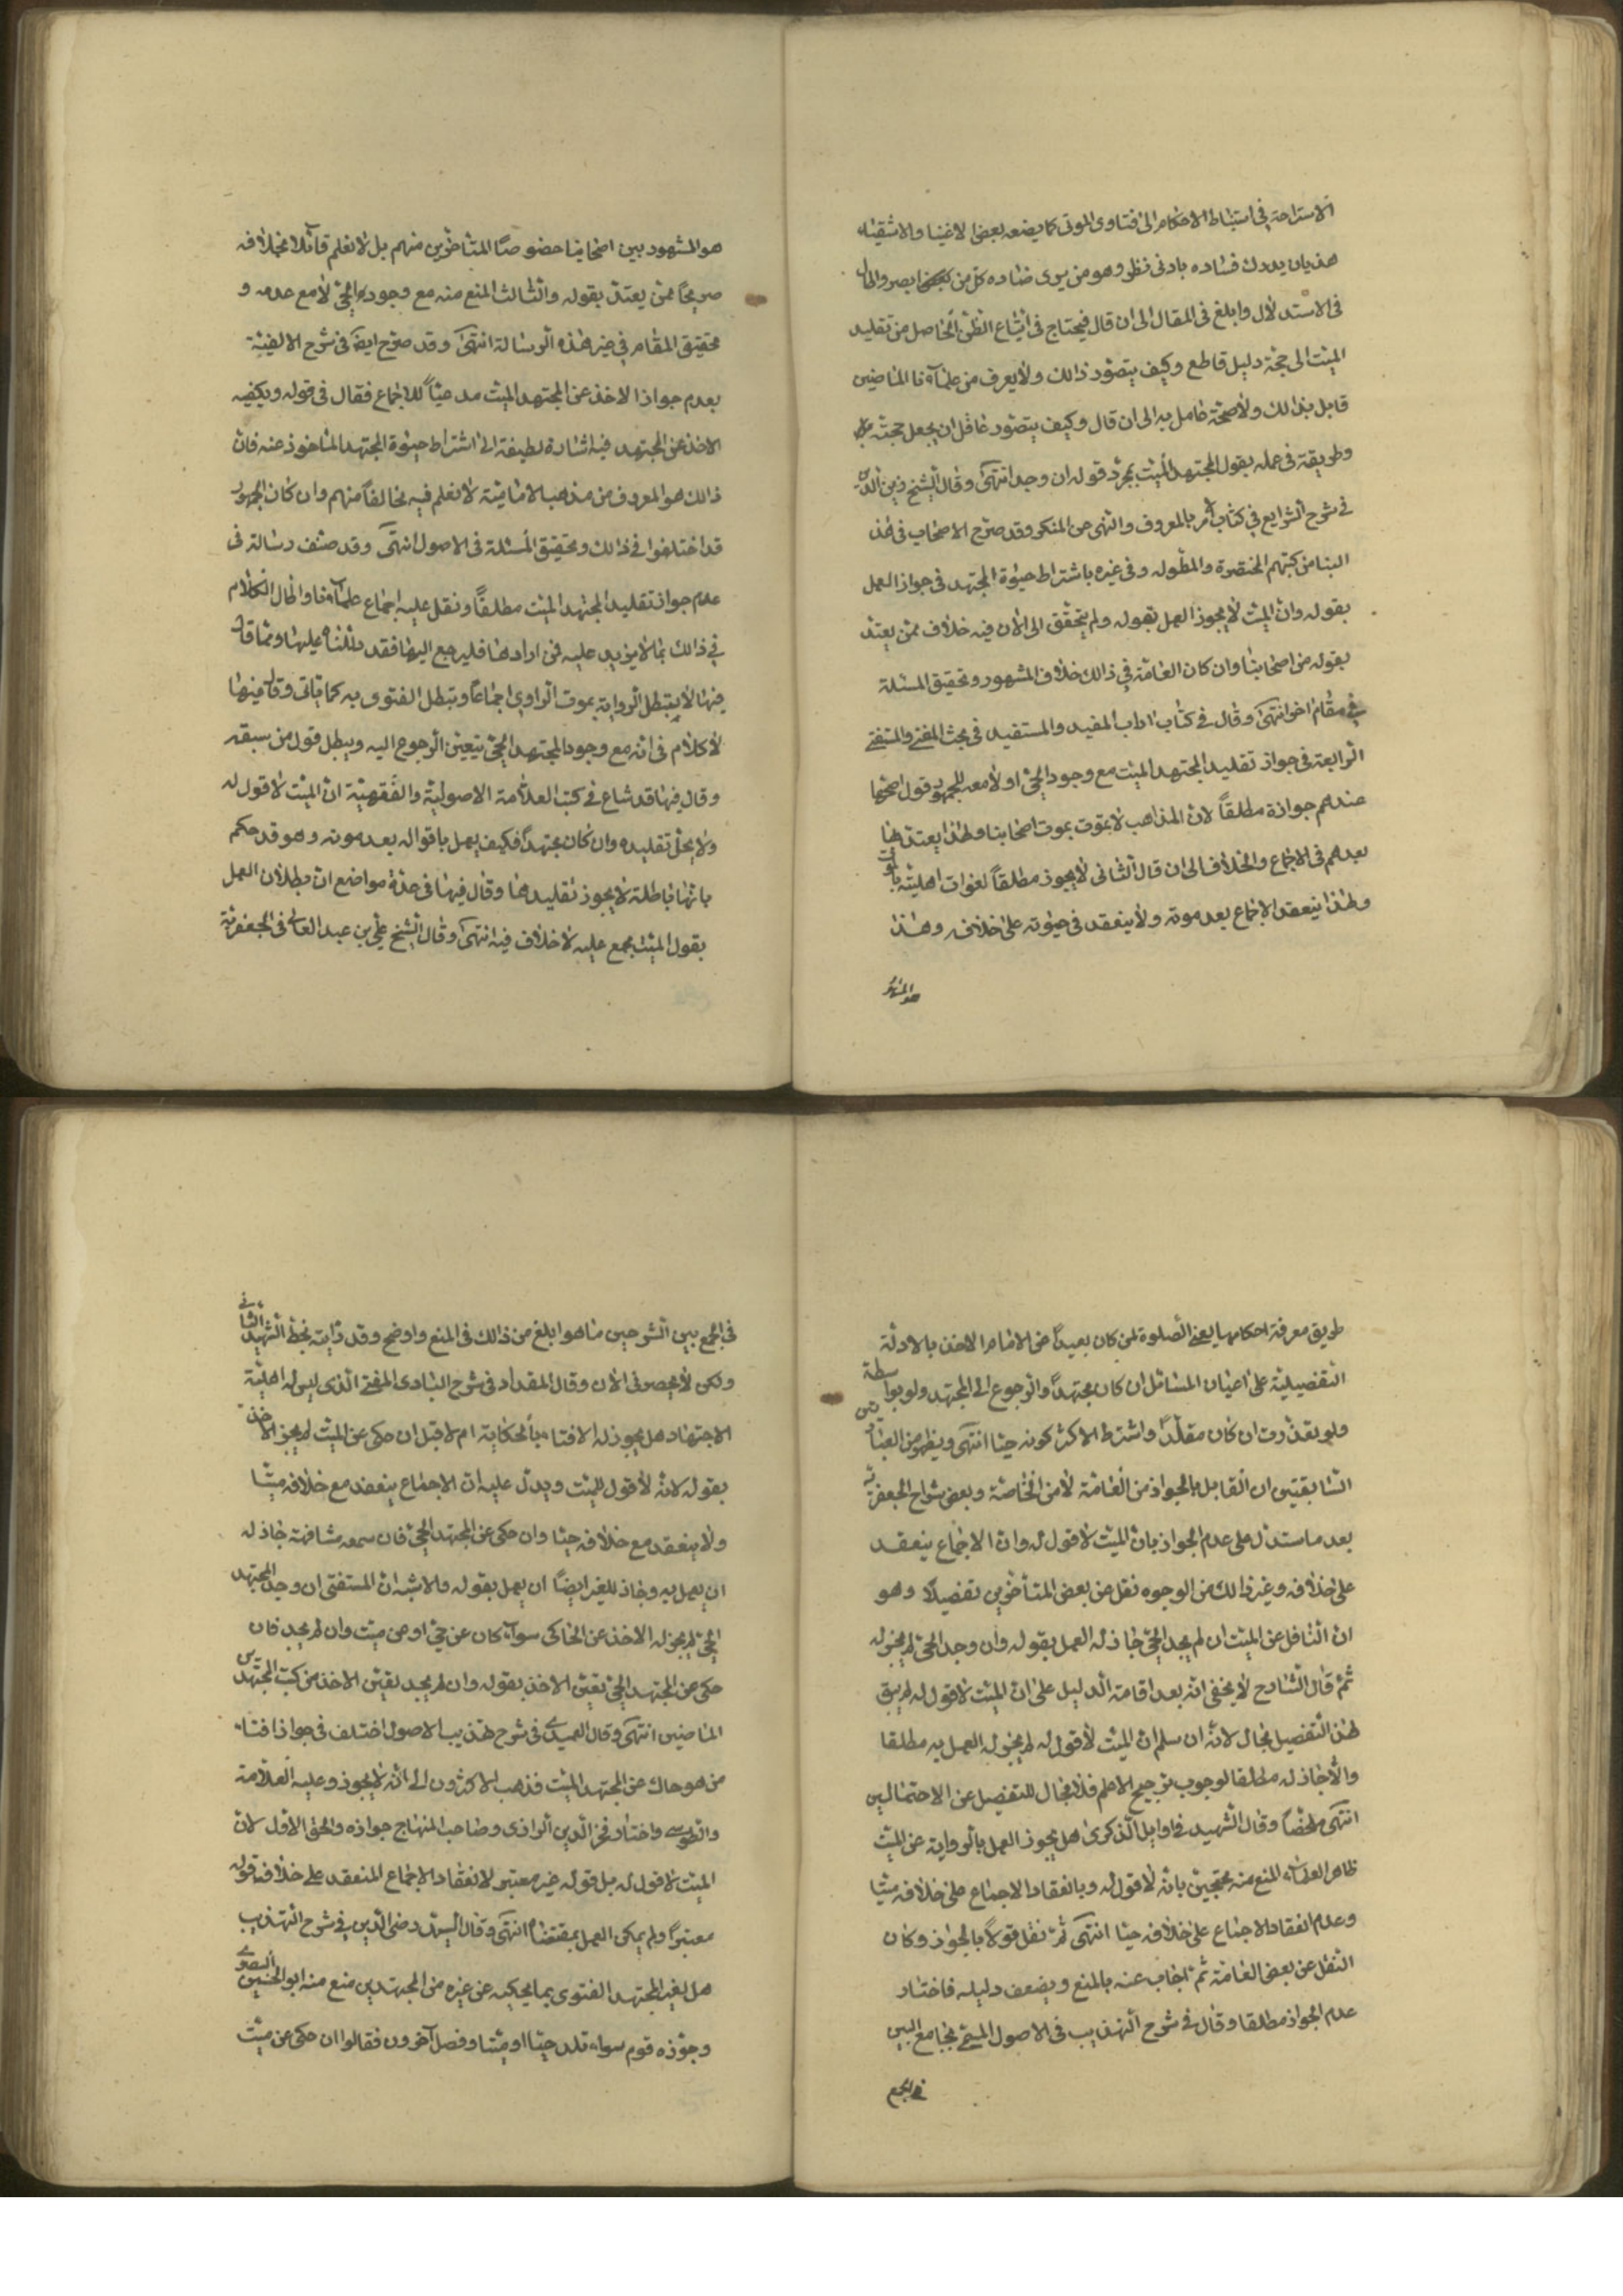 الاستراحة في استنباط الاحكام الى فتاوى الموتى كما يضعه بعض الاغنيا والاشقياء
هذيان يدرك فساده بادنى نظر وهو من يرى فساده كل من بعض ابصر والحال
فى الاستدلال وابلغ فى المقال الى ان قال فيحتاج فى اتباع الظن الحاصل من تقليد
الميت الى حجة دليل قاطع وكيف يتصور ذالك ولا يعرف من علمآءنا الماضين
قايل بذالك ولا صحة عامل به الى ان قال وكيف يتصور عاقل ان يجعل حجته
وطريقة فى عمله بقول المجتهد الميت بمجرد قوله ان وجد انتهى وقال الشيخ زين الدين
فى شرح الشرايع في كتاب الامر بالمعروف والنهى عن المنكر وقد صرح الاصحاب فى هذ
البنا من كتبهم المختصرة والمطوله وفى غيره باشتراط حيوة المجتهد فى جواز العمل
بقوله وان الميت لا يجوز العمل بقوله ولم يتحقق الى الان فيه خلاف ممن يعتد
بقوله من اصحابنا وان كان العامة في ذالك خلاف المشهور وتحقيق المسئلة
في مقام اخر انتهى وقال فى كتاب اداب المفيد والمستفيد فى بحث المفتى والمستفتى
الرابعة فى جواز تقليد المجتهد الميت مع وجود الحى او لا معه للجمهور قول اصحها
عندهم جوازة مطلقاً لان المذاهب لا بموت بموت اصحابنا ولهذا يعتد لها
بعدهم فى الاجماع والخلاف الى ان قال الثانى لا يجوز مطلقاً لفوات اهليته بالموت
ولهذا ينعقد الاجماع بعد موته ولا ينعقد فى حيوته على خلافه وهذا
هو المشهور
هو المشهود بين اصحابنا خصوصًا المتاخرين منهم بل لا نعلم قآئلا بخلافه
صريحاً ممن يعتد بقوله والثالث المنع منه مع وجود الحى لا مع عدمه و
تحقيق المقام في غير هذه الرسالة انتهى وقد صرح ايضَ فى شرح الالفية
بعدم جواز الاخذ عن المجتهد الميت مدعياً للاجماع فقال فى قوله ويكفيه
الاخذ عن المجتهد فيه اشارة لطيفة الى اشتراط حيوة المجتهد الماخوذ عنه فان
ذالك هو المعروف من مذهب الامامية لا نعلم فيه مخالفاً منهم وان كان الجمهور
قد اختلفوا فى ذالك وتحقيق المسئلة فى الاصول انتهى وقد صنف رسالة فى
عدم جواز تقليد المجتهد الميت مطلقاً ونقل عليه اجماع علمآءنا واطال الكلام
في ذالك بما لا مزيد عليه فمن ارادها فليرجع اليها فقد دللناه عليها ومما قال
فيها لا يبطل الرواية بموت الراوي اجماعاً وتبطل الفتوى به كما ياتى وقال فيها
لا كلام فى انه مع وجود المجتهد الحى يتعين الرجوع اليه ويبطل قول من سبقه
وقال فيها قد شاع فى كتب العلامة الاصولية والفقهية ان الميت لا قول له
ولا يحل تقليده وان كان مجتهداً فكيف يعمل باقواله بعد موته وهو قد حكم
بانها باطلة لا يجوز تقليدها وقال فيها فى عدة مواضع ان بطلان العمل
بقول الميت مجمع عليه لا خلاف فيه انتهى وقال الشيخ على بن عبد العالى فى الجعفرية
طريق معرفة احكامها يعنى الصلوة لمن كان بعيداً عن الامام الاخذ بالادلة
التفصيلية على اعيان المسائل ان كان مجتهداً والرجوع الى المجتهد ولو بواسطة
ولو تعذرت ان كان مقلداً واشترط الاكثر كونه حيا انتهى ويظهر من العبارتين
السابقتين ان القايل بالجواز من العامة لا من الخاصة وبعض شراح الجعفرية
بعد ما ستدل على عدم الجواز بان الميت لا قول له وان الاجماع ينعقد
على خلافه وغير ذالك من الوجوه نقل عن بعض المتأخرين تفصيلا وهو
ان الناقل عن الميت ان لم يجد الحى جاز له العمل بقوله وان وجد الحى لم يجز له
ثم قال الشارح لا يخفى انه بعد اقامة الدليل على ان الميت لا قول له لم يبق
لهذ التفصيل مجال لانه ان سلم ان الميت لا قول له لم يجز له العمل به مطلقا
والا جاز له مطلقا لوجوب ترجيح الاعلم فلا مجال للتفصيل عن الاحتمالين
انتهى ملخصاً وقال الشهيد فى اوايل الذكرى هل يجوز العمل بالرواية عن الميت
ظاهر العلماء المنع منه محتجين بانه لا قول له وبانعقاد الاجماع على خلافه ميتا
وعدم انعقاد الاجماع على خلافه حيا انتهى ثم نقل قولاً بالجواز وكان
النقل عن بعض العامة ثم اجاب عنه بالمنع ويضعف دليله فاختار
عدم الجواز مطلقا وقال فى شرح التهذيب فى الاصول المسمى بجامع البين
فى الجمع
فى الجمع بين الشرحين ما هو ابلغ من ذالك فى المنع واوضح وقد رايته بخط الشهيد الثانى
ولكن لا يحضرنى الان وقال المقداد فى شرح البادى المفتى الذى ليس له اهلية
الاجتهاد هل يجوز له الافتاء بالحكاية ام لا قيل ان حكى عن الميت لم يجز الاخذ
بقوله لانه لا قول للميت ويدل عليه ان الاجماع ينعقد مع خلافه ميتا
ولا ينعقد مع خلافه حيا وان حكى عن المجتهد الحى فان سمعه مشافهة جاز له
ان يعمل به وجاز للغير ايضًا ان يعمل بقوله والاشبه ان المستفتى ان وجد المجتهد
الحى لم يجز له الاخذ عن الحاكى سوآء كان عن حى او عن ميت وان لم يجد فان
حكى عن المجتهد الحى تعين الاخذ بقوله وان لم يجد تعين الاخذ من كتب المجتهدين
الماضين انتهى وقال العميدى فى شرح تهذيب الاصول اختلف فى جواز افتاء
من هو حاك عن المجتهد الميت فذهب الاكثرون الى انه لا يجوز وعليه العلامة
والطوسى واختار فخر الدين الرازى وصاحب المنهاج جوازه والحق الاول لان
الميت لا قول له بل قوله غير معتبر لانعقاد الاجماع المنعقد على خلافه قوله
معتبراً ولم يمكن العمل بمقتضاه انتهى وقال السيد رضى الدين في شرح التهذيب
هل لغير المجتهد الفتوى بما يحكيه عن غيره من المجتهدين منع منه ابو الحسين البصرى
وجوزه قوم سواء قلد حيا او ميتا وفصل آخرون فقالوا ان حكى عن ميت